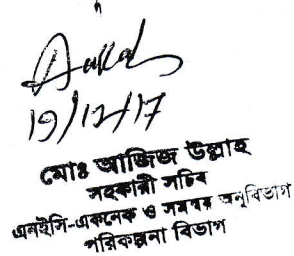 19/12/17
মোঃ আজিজ উল্লাহ
সহকারী সচিব
এনইসি-একনেক ও সমন্বয় অনুবিভাগ
পরিকল্পনা বিভাগ